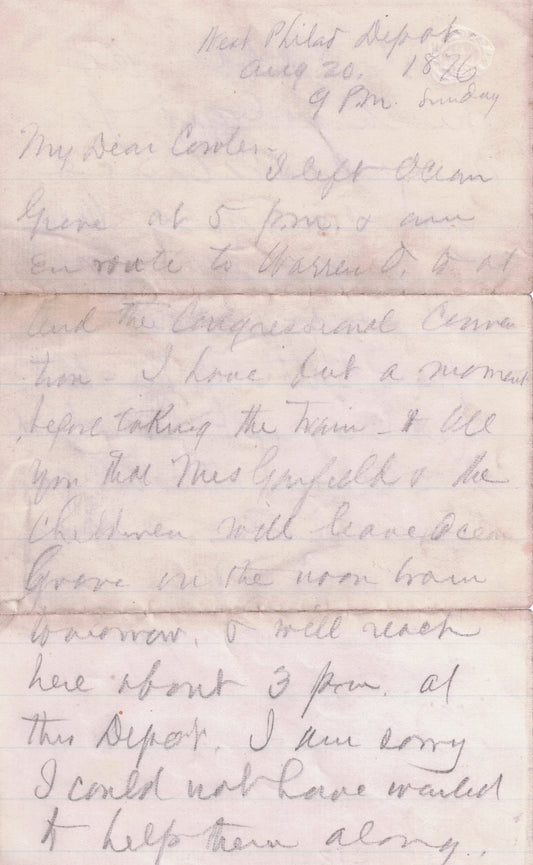 West Philad Depot.
Aug 20. 1876
9 P.m. Sunday
My Dear Cowles
I left Ocean
Grove at 5 p.m. & am
en route to Warren O. to at
tend the Congressional Conven
tion - I have but a moment
before taking the train - to tell
you that Mrs Garfield & the
children will leave Ocean
Grove on the noon train
tomorrow, & will reach
here about 3 p.m. at
this Depot. I am sorry
I could not have waited
to help them along.